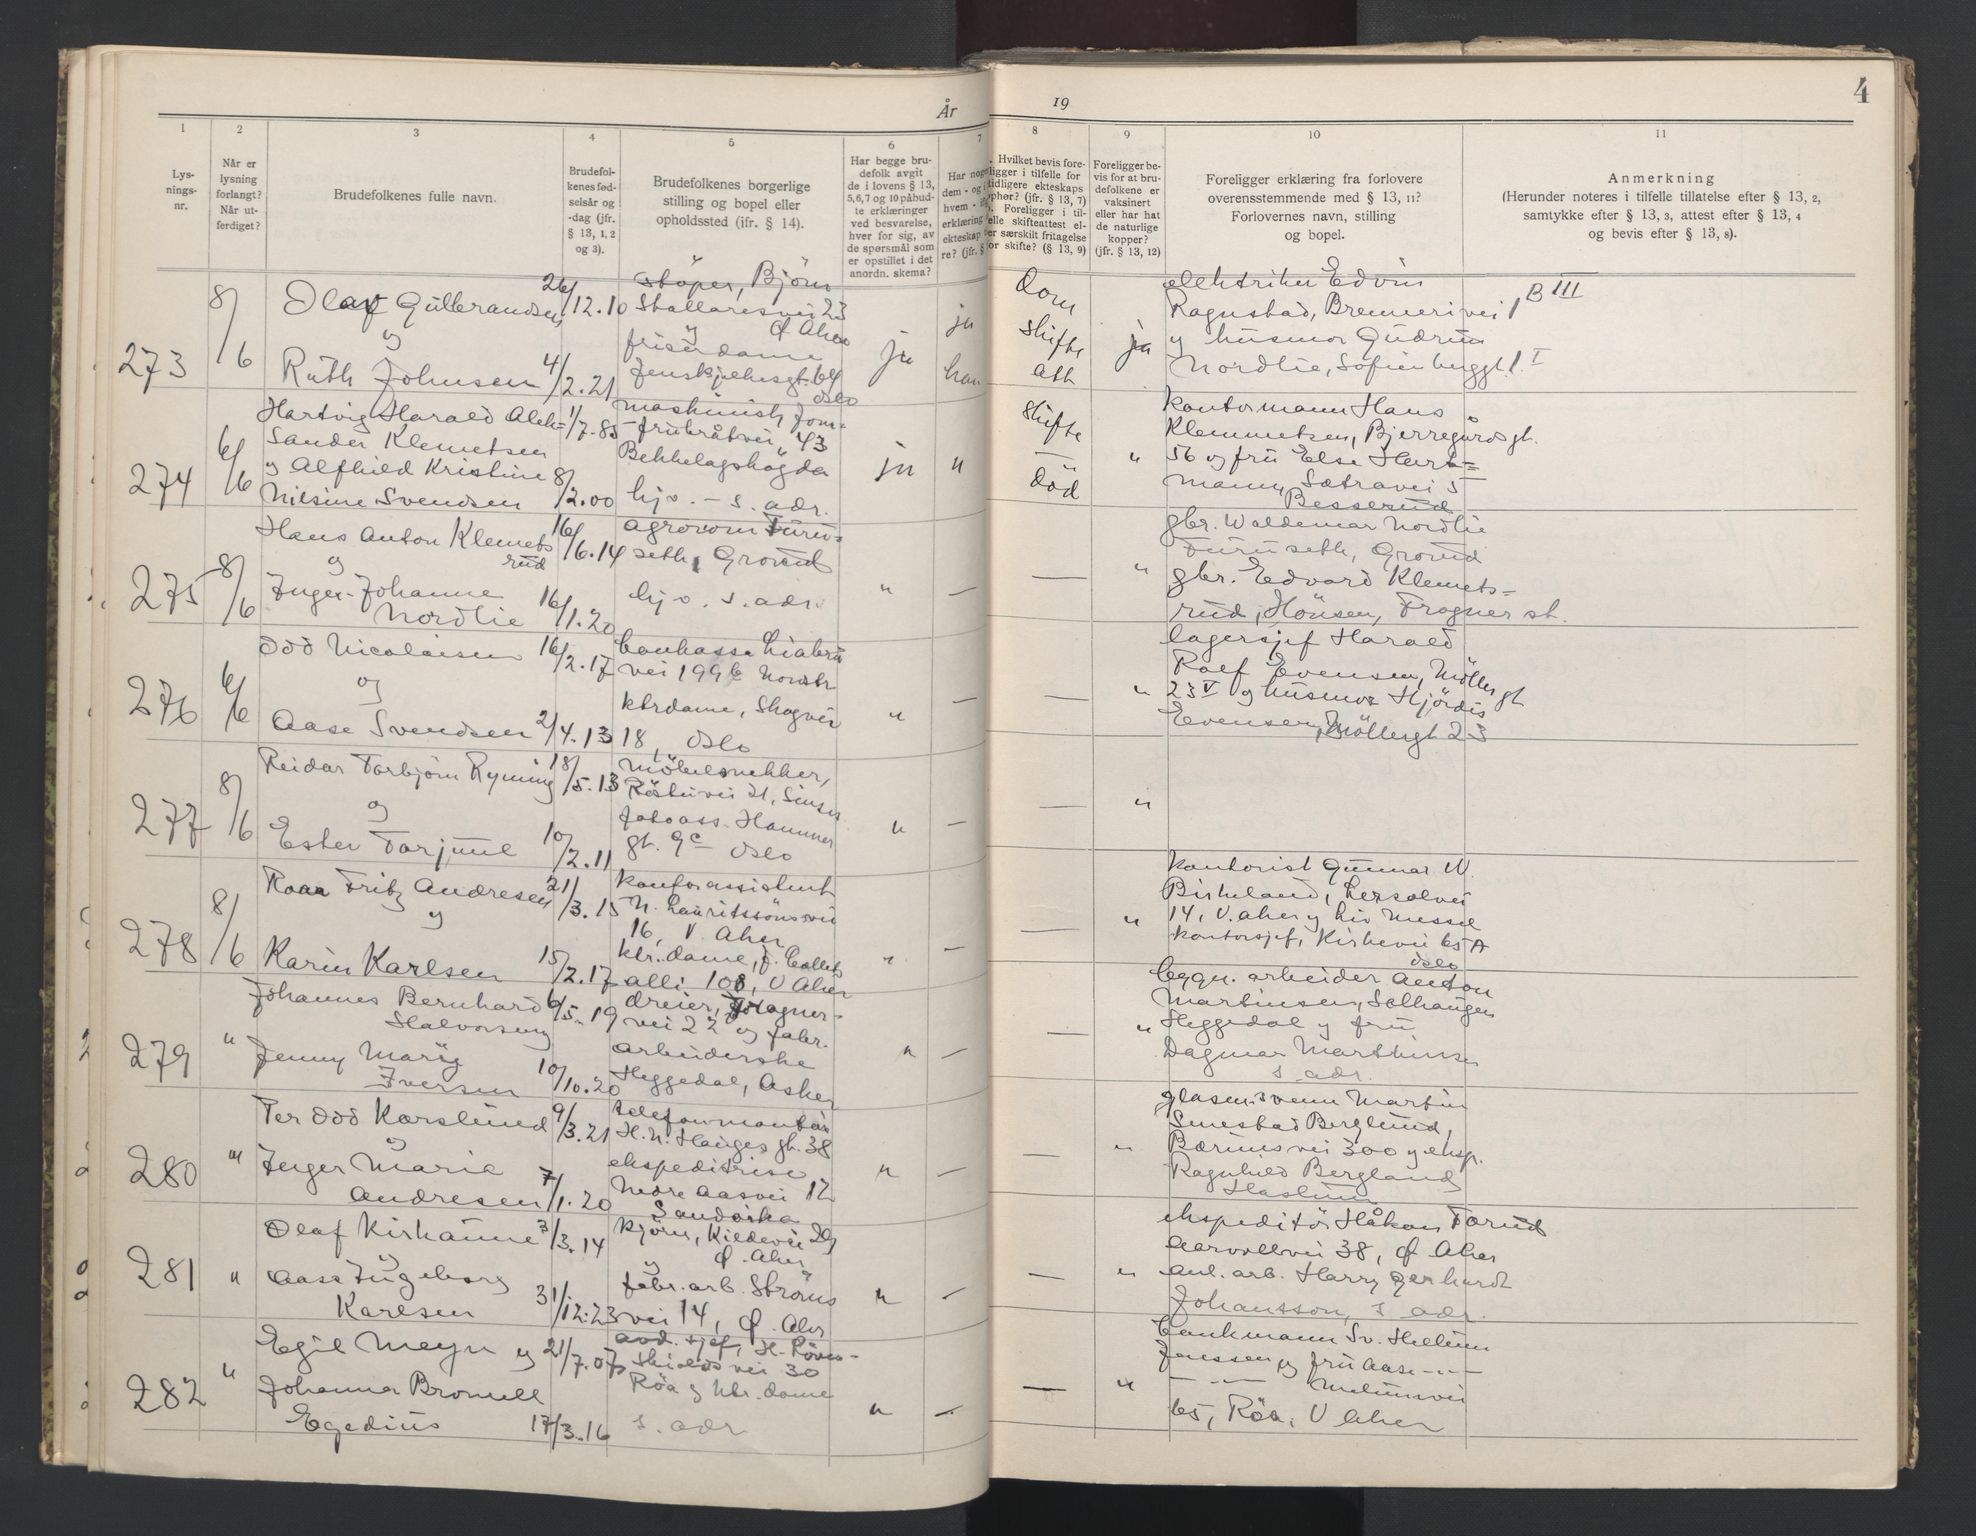 År
19
4
1
2
3
4
5
6
7
8
9
10
11
Lys-
nings-
nr.
Når er
lysning
forlangt?
Når ut-
ferdiget?
Brudefolkenes fulle navn.
Brudefol-
kenes fød-
selsår og
-dag (jfr.
§ 13, 1, 2
og 3).
Brudefolkenes borgerlige
stilling og bopel eller
opholdssted (ifr. § 14).
Har begge bru-
defolk avgit
de i lovens § 13,
5,6,7 og 10 påbud-
te erklæringer
ved besvarelse,
hver for sig, av
de spørsmål som
er opstillet i det
anordn. skema?
Har noge
dem - og i
hvem -
erklæring
ekteskap
re? (jfr. §
Hvilket bevis fore-
ligger i tilfelle for
tidligere ekteskaps
ophør? (jfr. § 13, 7)
Foreligger i til-
elle skifteattest el-
er særskilt fritagelse
or skifte? (§ 13, 9)
Foreligger be-
vis for at bru-
defolkene er
vaksinert
eller har hat
de naturlige
kopper?
(jfr. § 13, 12)
Foreligger erklæring fra forlovere
overensstemmende med § 13, 11?
Forlovernes navn, stilling
og bopel.
Anmerkning
(Herunder noteres i tilfelle tillatelse efter § 13, 2,
samtykke efter § 13, 3, attest efter § 13, 4
og bevis efter § 13, 8).
273
8/6
Olaf Gulbrandsen
og
Ruth Johnsen
26/12.10
4/2.21
støper, Bjørn
Stallaresvei 23
og Ø Aker
frisørdame
Jenskjelsgt. 64
Oslo
ja
ja
han
Dom
Skifte
att
ja
elektriker Edvin
Ragnstad, Brennerivei 1
og husmor Gudrun
Nordlie, Sofienberggt. 1 I
B III
274
6/6
Hartvig Harald Alek=
sander Klemetsen
og Alfhild Kristine
Nilsine Svendsen
1/7.85
8/2.00
maskinist, Jom-
frubråtvei 43
Bekkelagshøgda
hjv. - s. adr.
ja
"
Skifte
—
död
"
kontormann Hans
Klemmetsen, Bjerregårdsgt.
56 og fru Else Hart=
mann, Sætravei 5
Besserud
275
8/6
Hans Anton Klemets
rud
og
Inger Johanne
Nordlie
16/6.14
16/1.20
agronom Furu=
seth, Grorud
hjv. s. adr.
"
—
—
"
gbr. Waldemar Nordlie
Furuseth, Grorud
gbr. Edvard Klemets=
rud, Hönsen, Frogner st.
276
6/6
Odd Nicolaisen
og
Aase Svendsen
16/2.17
2/4.13
bankasse Liabru
vei 199 b Nordstr
ktrdame, Skogvei
18, Oslo
"
—
—
"
lagersjef Harald
Rolf Evensen, Möllergt
23 V og husmor Hjördis
Evensen, Möllergt 23
277
8/6
Reidar Torbjörn Ryning
og
Ester Torjuul
18/5.13
10/2.11
Möbelsnekker,
Rösteivei 21, Sinsen
fotoass. Hammer
gt. 9c Oslo
"
—
—
"
278
8/6
Roar Fritz Andresen
og
Karin Karlsen
21/3.15
15/2.17
kontorassistent
N. Lauritssönsvei
16, V. Aker
ktr. dame, J. Collets
alli 108, V Aker
"
—
—
"
kontorist Gunnar W.
Birkeland, Lersolvei
14, V. Aker og Liv Messel
kontorsjef, Kirkevei 65 A
Oslo
279
"
Johannes Bernhard
Halvorsen og
Jenny Marie
Iversen
6/5.19
10/10.20
dreier, Frogner-
vei 22 og fabr.
arbeiderske
Heggedal, Asker
"
—
—
"
bygn. arbeider Anton
Martinsen, Solhaugen
Heggedal og fru
Dagmar Marthinsen
s. adr.
280
"
Per Odd Karslund
og
Inger Marie
Andresen
9/3.21
7/1.20
telefonmontör
H. N. Hauges gt. 38
ekspeditrise
Nedre Aasvei 12
Sandvika
"
—
—
"
glasersvenn Martin
Smestad Berglund,
Bærumsvei 300 og eksp.
Ragnhild Bergland
Haslum
281
"
Olaf Kirkaune
og
Aase Ingeborg
Karlsen
3/3.14
31/12.23
kjörer, Kildevei 29
og Ø. Aker
fabr. arb. Ströms
vei 14, Ø. Aker
"
—
—
"
ekspeditör Håkon Torud
Aarvollvei 38, Ø. Aker
anl. arb. Harry Gerhardt
Johansson, s adr.
282
"
Egil Meyn og
Johanna Bromell
Egedius
21/7.07
17/3.16
avd. sjef, H. Röver-
Skiolds vei 30
Röa og ktr. dame
s. adr
"
—
—
"
bankmann Sv. Hellum
Jenssen og fru Aase - " -
- " - Melumsvei
65, Röa, V Aker